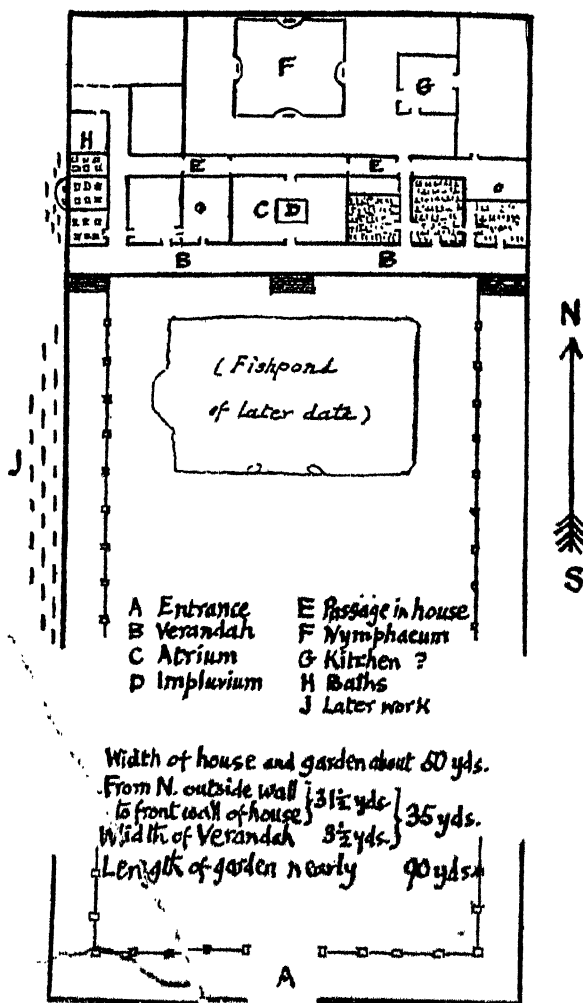 F
G
H
E E
C D
B B
N
(Fishpond
of later date)
J
S
A Entrance
B Verandah
C Atrium
D Impluvium
E Passage in house
F Nymphaeum
G Kitchen ?
H Baths
J Later work
Width of house and garden about 50 yds.
From N. outside wall
to front wall of house } 31½ yds. } 35 yds.
Width of Verandah 3½ yds.
Length of garden nearly 90 yds.
A